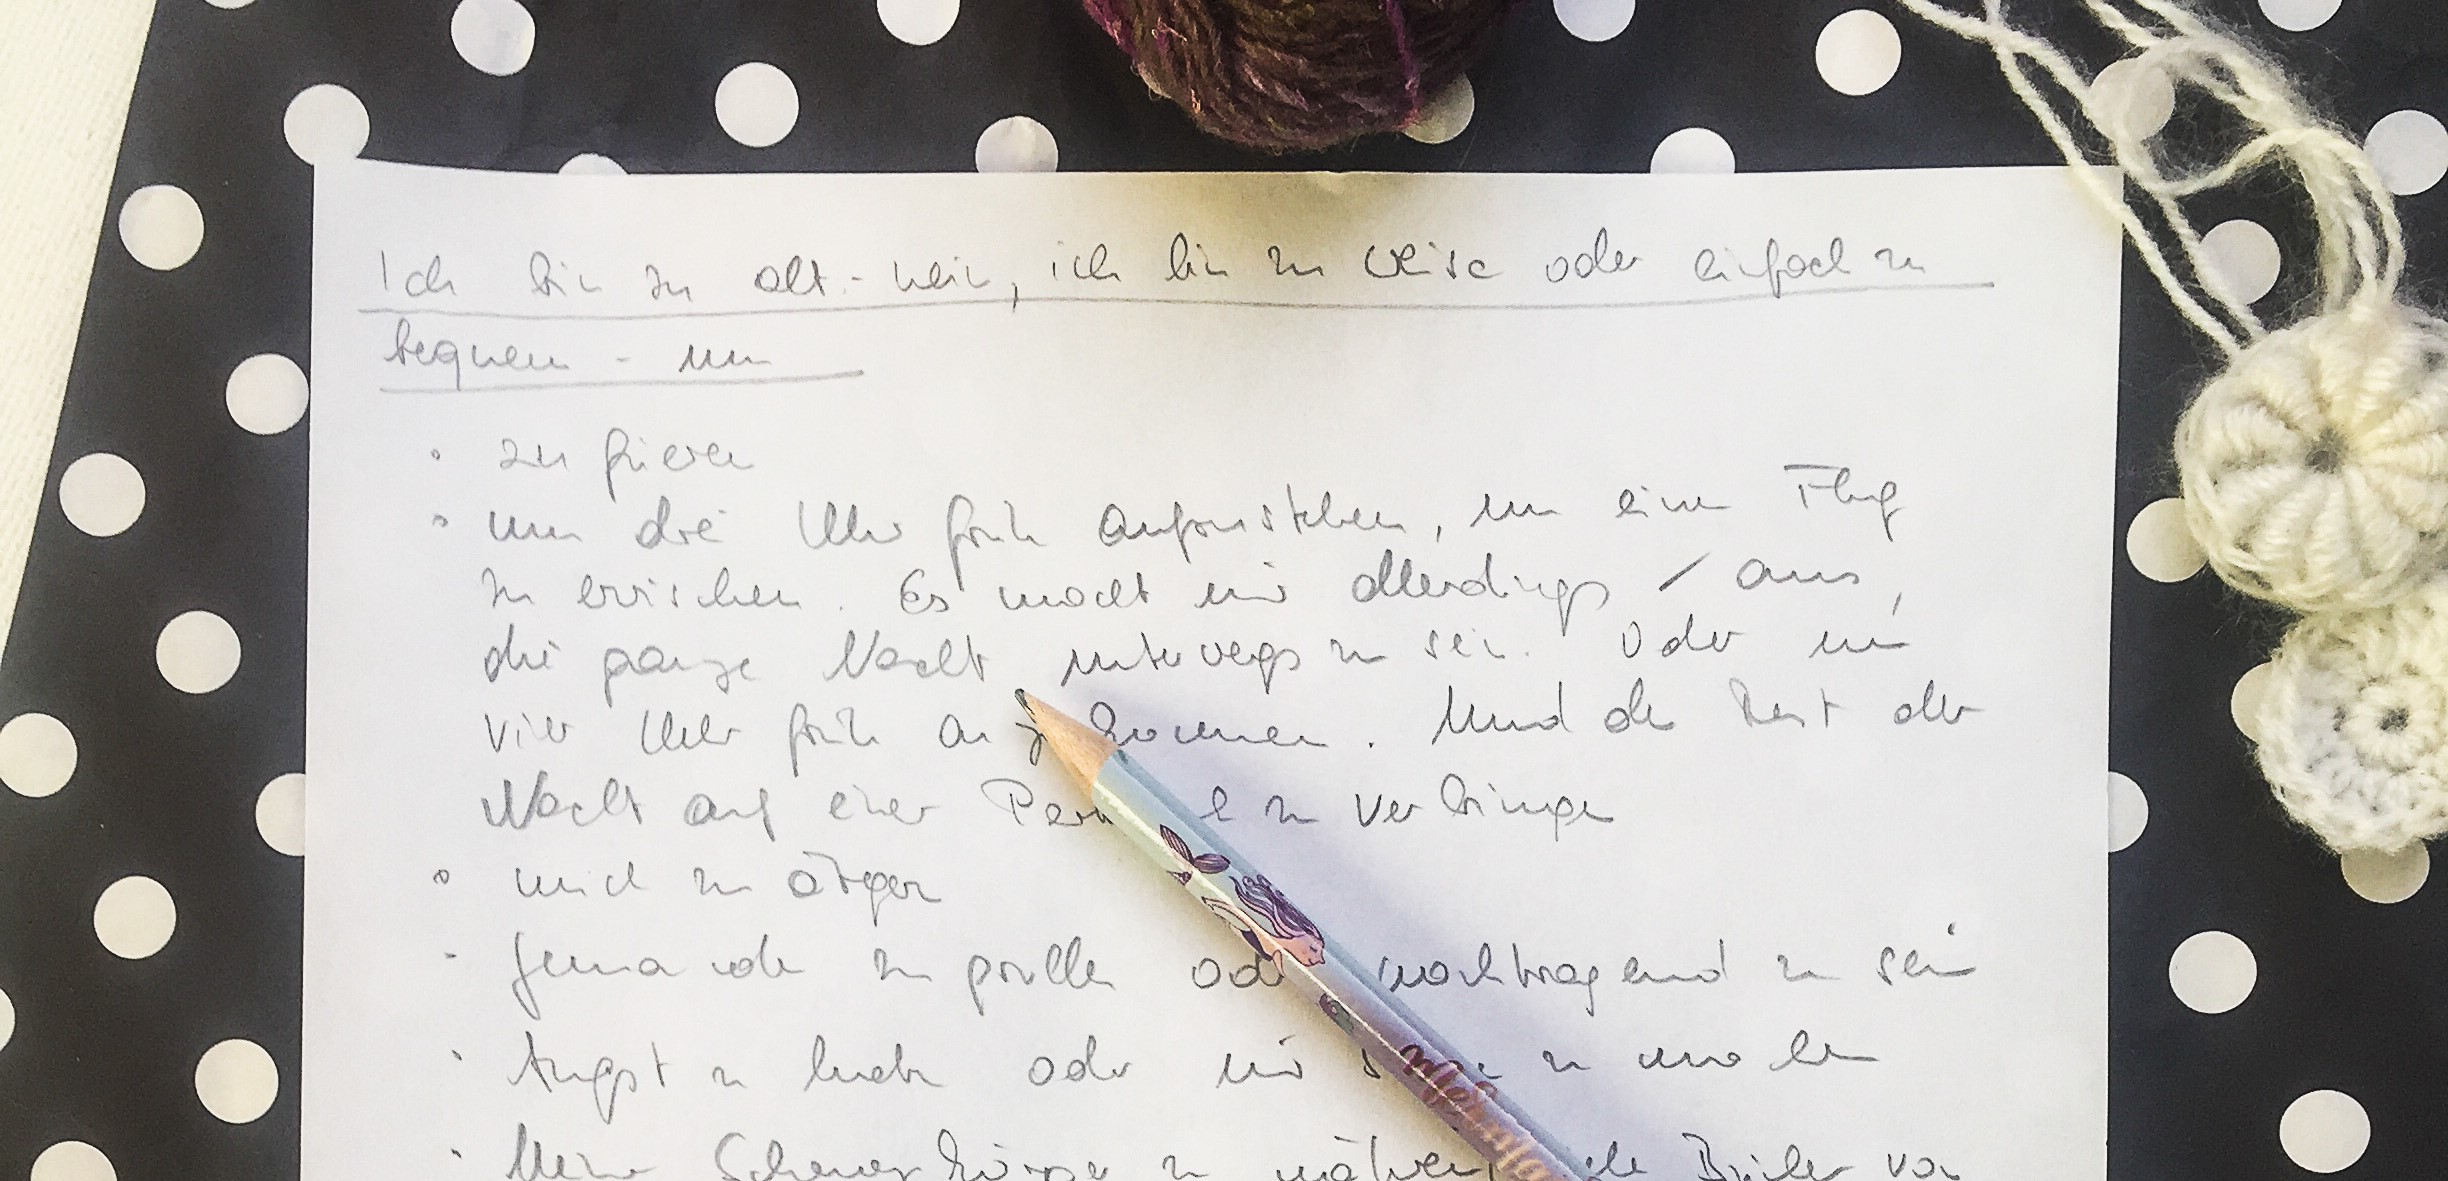 Ich bin zu alt - nein, ich bin zu weise oder einfach zu
bequem - um
• zu frieren
• um drei Uhr früh aufzustehen, um einen Flug
zu erwischen. Es macht mir allerdings / aus,
die ganze Nacht unterwegs zu sein. Oder um
vier Uhr früh anzukommen. Und den Rest der
Nacht auf einer zu verbringen
• mich zu ärgern
• jemanden zu grollen oder nachtragend zu sein
• Angst zu haben oder mir zu machen
• Meine Schmerzkörper zu nähren Bücher von